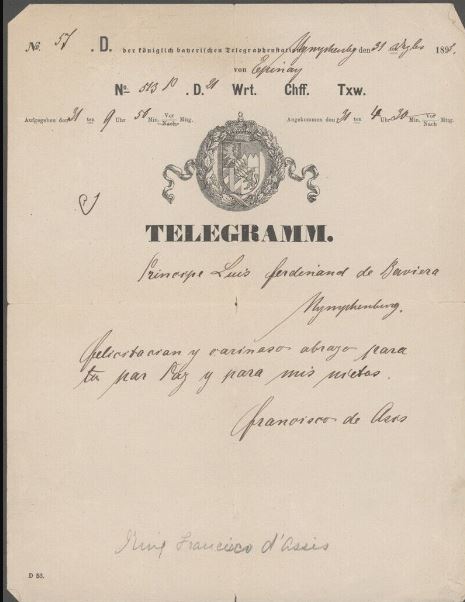 No. 57 . D. der königlich bayerischen Telegraphenstation Nymphenbg den 31 189
von Epinay
No 513 P. D. 21 Wrt. Chff. Txw.
Aufgegeben den 31 ten 9 Uhr 50 Min. Vor/Nach Mttg. Angekommen den 31 ten Uhr 30 Min. Vor/Nach Mttg.
TELEGRAMM.
Principe Luis Ferdinand de Baviera
Nymphenburg.
felicitacian y carinaso abrazo para
tu par Paz y para mis nietas.
Francisco de Asis
King Francisco d'Assis
D 53.